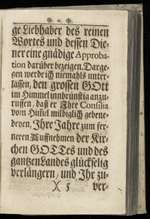 ge Liebhaber des reinen
Wortes und dessen Die-
ner eine gnädige Approba-
tion darüber bezeigen. Darge-
gen werde ich niemahls unter-
lassen, den grossen GOtt
im Himmel inbrünstig anzu-
ruffen, daß er Ihre Consilia
vom Himmel mildiglich gebene-
deyen, Ihre Jahre zum fer-
neren Auffnehmen der Kir-
chen GOTTes und des
gantzen Landes glückselig
verlängern, und Ihr zu-
X 5 ver-